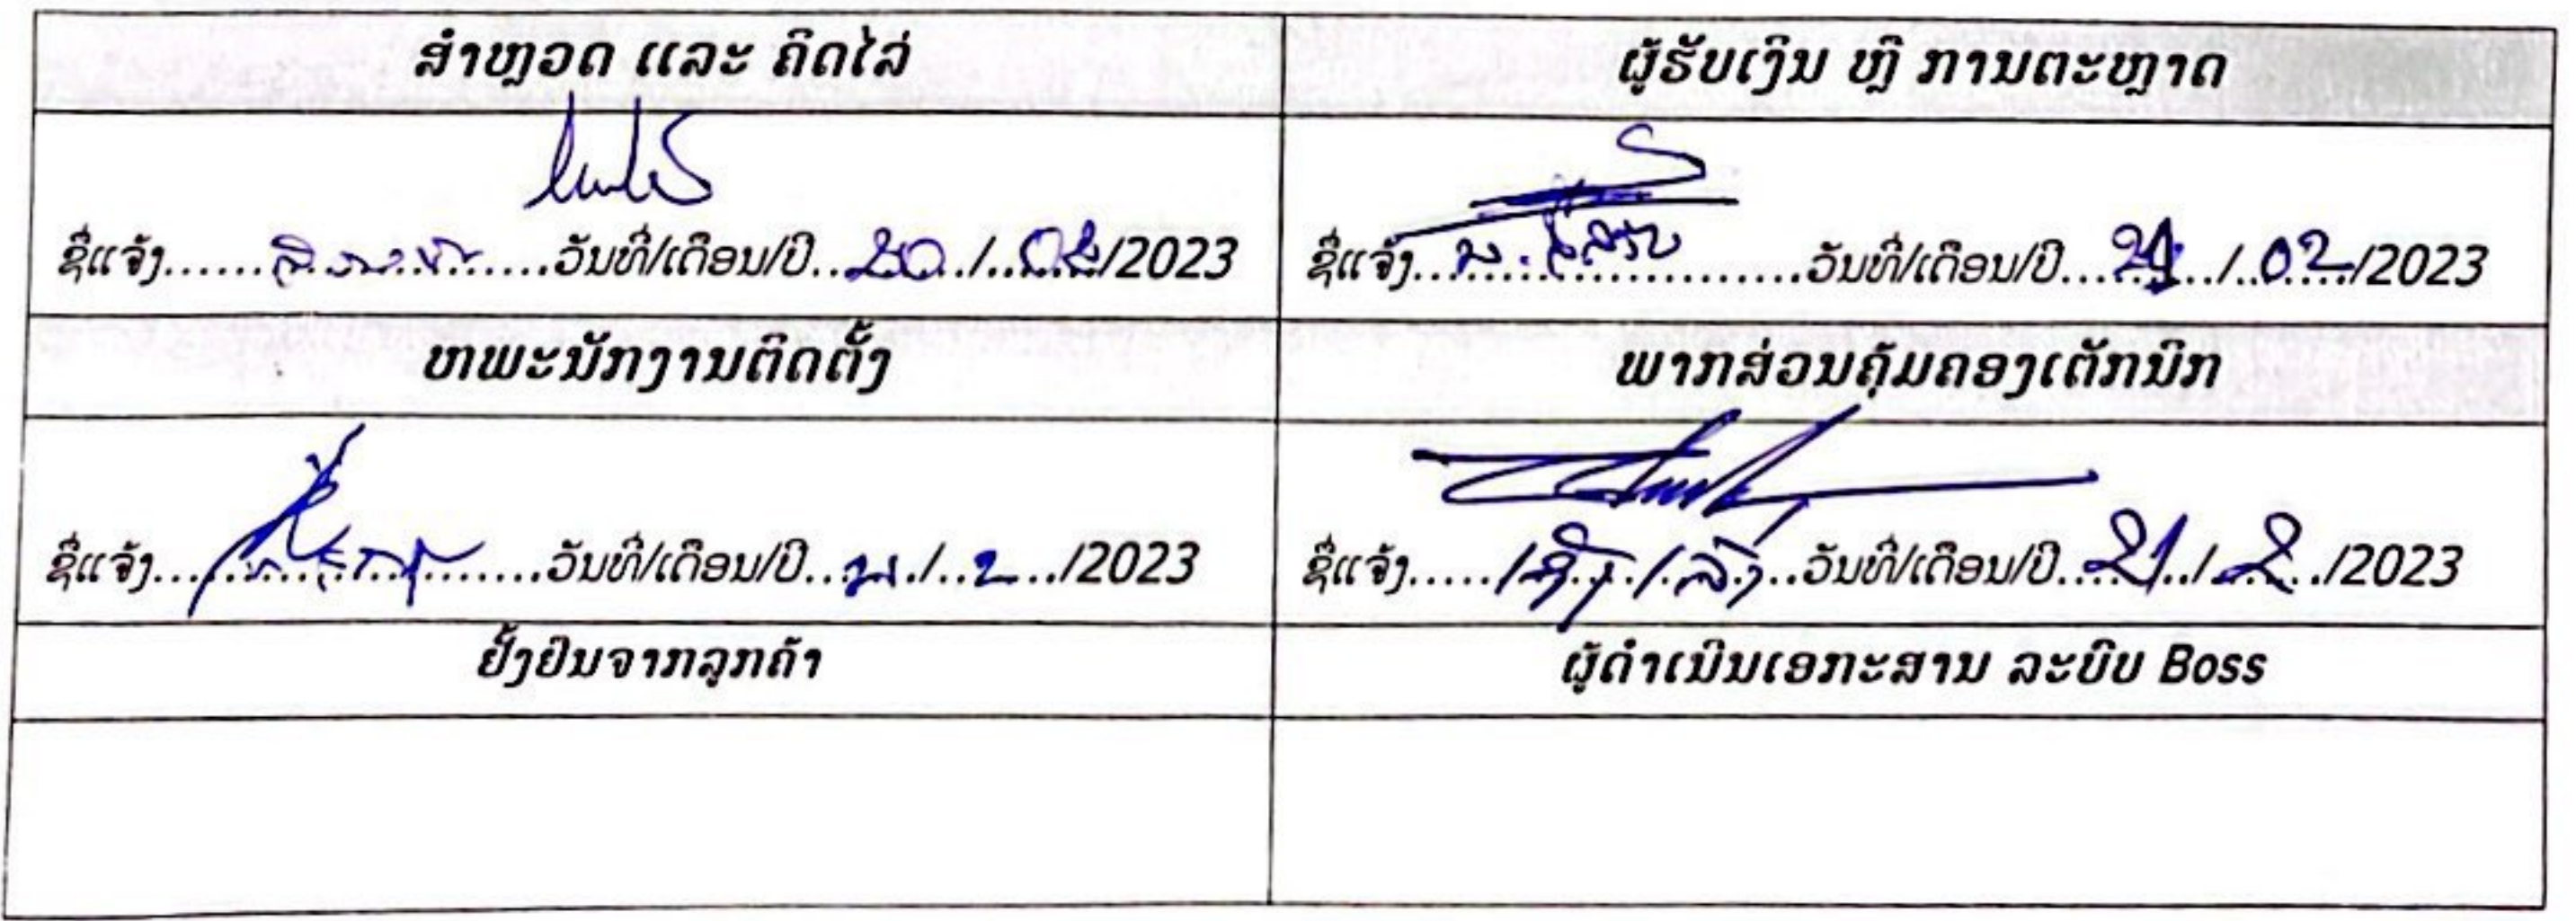 ສຳຫຼວດ ແລະ ຄິດໄລ່
ຜູ້ຮັບເງິນ ຫຼື ການຕະຫຼາດ
ຊື່ແຈ້ງ...........ວັນທີ່/ເດືອນ/ປີ...20../..02/2023
ຊື່ແຈ້ງ...........ວັນທີ່/ເດືອນ/ປີ....../..02../2023
ຫພະນັກງານຕິດຕັ້ງ
ພາກສ່ວນຄຸ້ມຄອງເຕັກນິກ
ຊື່ແຈ້ງ...........ວັນທີ່/ເດືອນ/ປີ...21./..2.../2023
ຊື່ແຈ້ງ...........ວັນທີ່/ເດືອນ/ປີ...21../..2.../2023
ຢັ້ງຢືນຈາກລູກຄ້າ
ຜູ້ດຳເນີນເອກະສານ ລະບົບ Boss